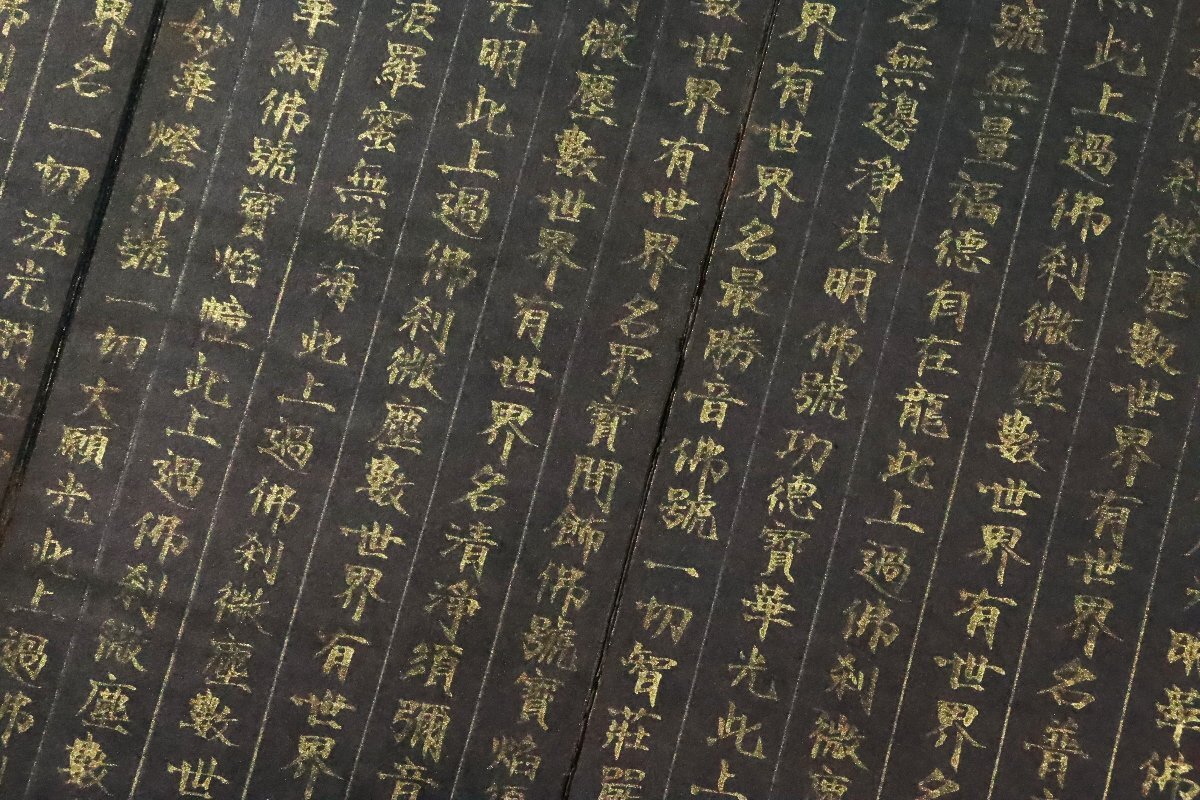 明華佛
佛刹微塵數世界有世界名普
無此上過佛刹微塵數世界有世界名
號無量福德自在龍此上過佛刹微塵
名無邊淨光明佛號功德寶華光此上
界有世界名最勝音佛號一切智莊嚴
數世界有世界名眾寶間飾佛號寶焰
刹微塵數世界有世界名清淨須彌音
光明此上過佛刹微塵數世界有世界
波羅蜜無礙海此上過佛刹微塵數世
華網佛號寶焰幢此上過佛刹微塵數
妙華燈佛號一切大願光此上過佛
界名一切法光明地